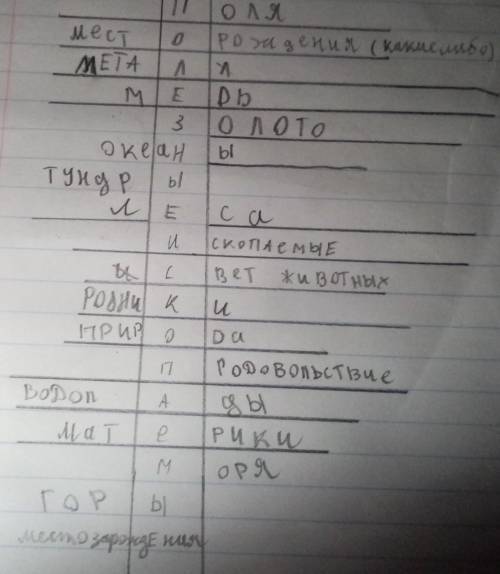 ПОЛЯ
местОРОждения (какиелибо)
МЕТАЛЛ
МЕДЬ
ЗОЛОТО
океаны
ТУНДРЫ
ЛЕса
ИСКОПАЕМЫЕ
ЦСВЕТ ЖИВОТНЫХ
РОДНИКИ
ПРИРОДа
ПРОДОВОЛЬСТВИЕ
ВОДОПАДЫ
МАТеРИКИ
МОРЯ
ГОРЫ
местозарождения